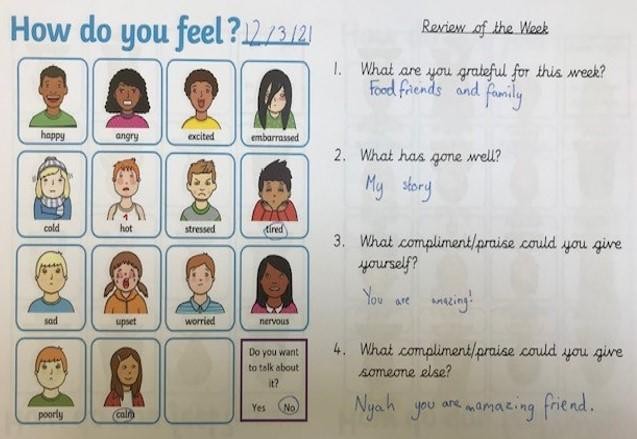 How do you feel? 12/3/21
happy angry excited embarrassed
cold hot stressed tired
sad upset worried nervous
poorly calm
Do you want
to talk about
it?
Yes No
Review of the Week
1. What are you grateful for this week?
Food friends and family
2. What has gone well?
My story
3. What compliment/praise could you give
yourself?
You are amazing!
4. What compliment/praise could you give
someone else?
Nyah you are amamazing friend.